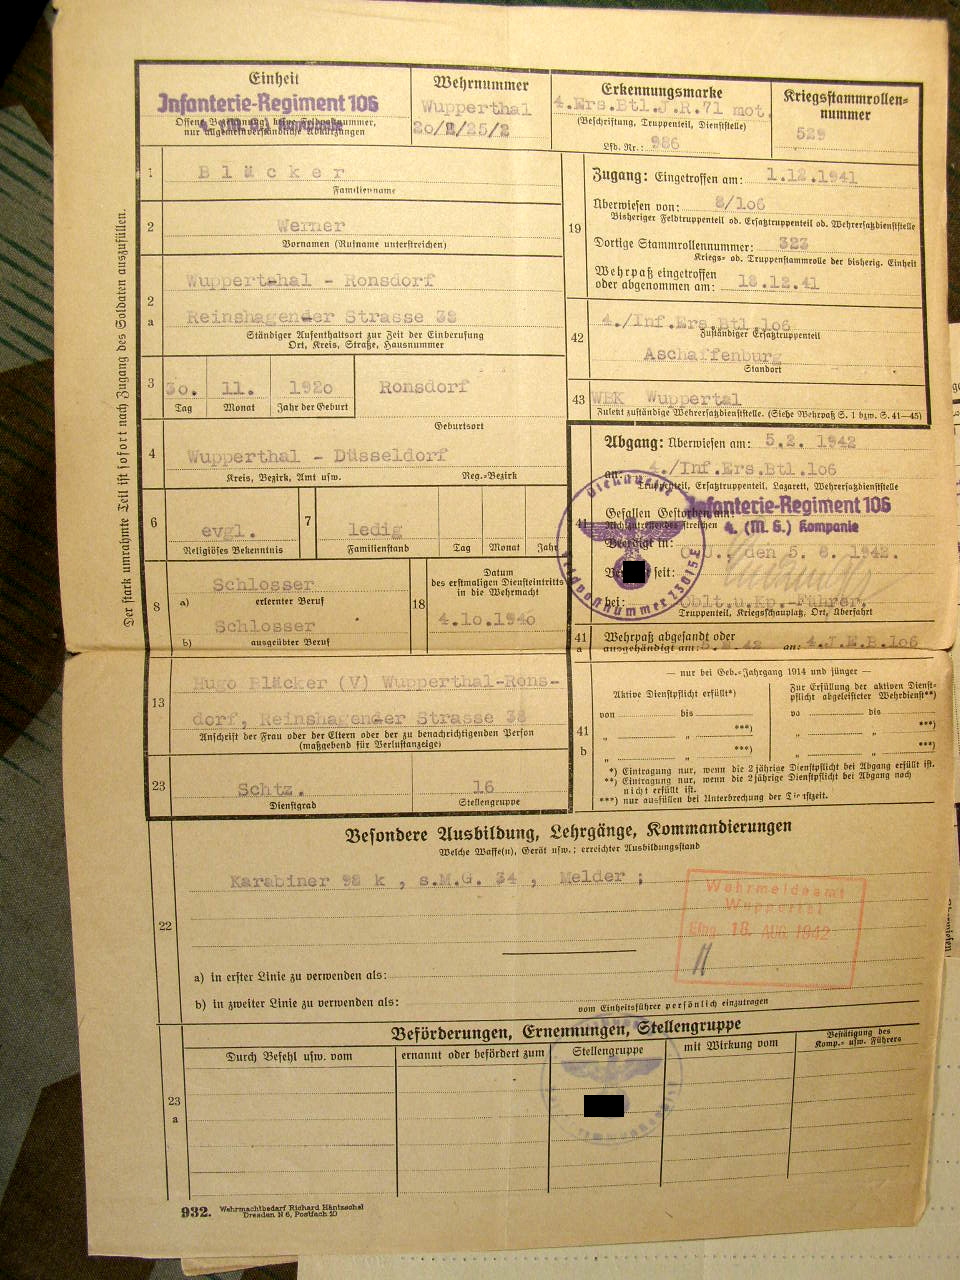 Einheit
Infanterie-Regiment 106
4. (M. G.) Kompanie
nur allgemeinverständliche Abkürzungen
Wehrnummer
Wupperthal
2o/2/25/2
Erkennungsmarke
4.Ers.Btl.J.R.71 mot.
(Beschriftung, Truppenteil, Dienststelle)
Lfd. Nr.: 986
Kriegsstammrollen-
nummer
529
Der stark umrahmte Teil ist sofort nach Zugang des Soldaten auszufüllen.
1
Bläcker
Familienname
2
Werner
Vornamen (Rufname unterstreichen)
2
a
Wupperthal - Ronsdorf
Reinshagender Strasse 38
Ständiger Aufenthaltsort zur Zeit der Einberufung
Ort, Kreis, Straße, Hausnummer
3
3o. 11. 192o Ronsdorf
Tag Monat Jahr der Geburt
Geburtsort
4
Wupperthal - Düsseldorf
Kreis, Bezirk, Amt usw. Reg.-Bezirk
6
evgl.
Religiöses Bekenntnis
7
ledig
Familienstand Tag Monat Jahr
8
Schlosser
a) erlernter Beruf
Schlosser
b) ausgeübter Beruf
18
Datum
des erstmaligen Diensteintritts
in die Wehrmacht
4.1o.194o
13
Hugo Bläcker (V) Wupperthal-Rons-
dorf, Reinshagender Strasse 38
Anschrift der Frau oder der Eltern oder der zu benachrichtigenden Person
(maßgebend für Verlustanzeige)
23
Schtz. 16
Dienstgrad Stellengruppe
19
Zugang: Eingetroffen am: 1.12.1941
Überwiesen von: 8/1o6
Bisheriger Feldtruppenteil od. Ersatztruppenteil od. Wehrersatzdienststelle
Dortige Stammrollennummer: 323
Kriegs- od. Truppenstammrolle der bisherig. Einheit
Wehrpaß eingetroffen
oder abgenommen am: 18.12.41
42
4./Inf.Ers.Btl.1o6
Zuständiger Ersatztruppenteil
Aschaffenburg
Standort
43
WBK Wuppertal
Zuletzt zuständige Wehrersatzdienststelle. (Siehe Wehrpaß S. 1 bzw. S. 41—45)
41
Abgang: Überwiesen am: 5.2. 1942
an: 4./Inf.Ers.Btl.1o6
Truppenteil, Ersatztruppenteil, Lazarett, Wehrersatzdienststelle
Infanterie-Regiment 106
4. (M. G.) Kompanie
Gefallen Gestorben am:
Nichtzutreffendes streichen
Beerdigt in:
O.U., den 5. 8. 1942.
seit:
bei: Oblt.u.Kp.-Führer.
Truppenteil, Kriegsschauplatz, Ort, Überfahrt
Dienststelle
Feldpostnummer 23015E
41
a
Wehrpaß abgesandt oder
ausgehändigt am: an: 4.J.E.B.1o6
— nur bei Geb.-Jahrgang 1914 und jünger —
41
b
Aktive Dienstpflicht erfüllt*)
von bis
" " ***)
" " ***)
Zur Erfüllung der aktiven Dienst-
pflicht abgeleisteter Wehrdienst**)
bis
" " ***)
" " ***)
*) Eintragung nur, wenn die 2 jährige Dienstpflicht bei Abgang erfüllt ist.
**) Eintragung nur, wenn die 2 jährige Dienstpflicht bei Abgang noch
nicht erfüllt ist.
***) nur ausfüllen bei Unterbrechung der Dienstzeit.
22
Besondere Ausbildung, Lehrgänge, Kommandierungen
Welche Waffe(n), Gerät usw.; erreichter Ausbildungsstand
Karabiner 98 k , s.M.G. 34 , Melder ;
Wehrmeldeamt
Wuppertal
Eing. 18. AUG. 1942
a) in erster Linie zu verwenden als:
b) in zweiter Linie zu verwenden als:
vom Einheitsführer persönlich einzutragen
23
a
Beförderungen, Ernennungen, Stellengruppe
Durch Befehl usw. vom
ernannt oder befördert zum
Stellengruppe
mit Wirkung vom
Bestätigung des
Komp.- usw. Führers
932. Wehrmachtbedarf Richard Häntzschel
Dresden N 6, Postfach 10